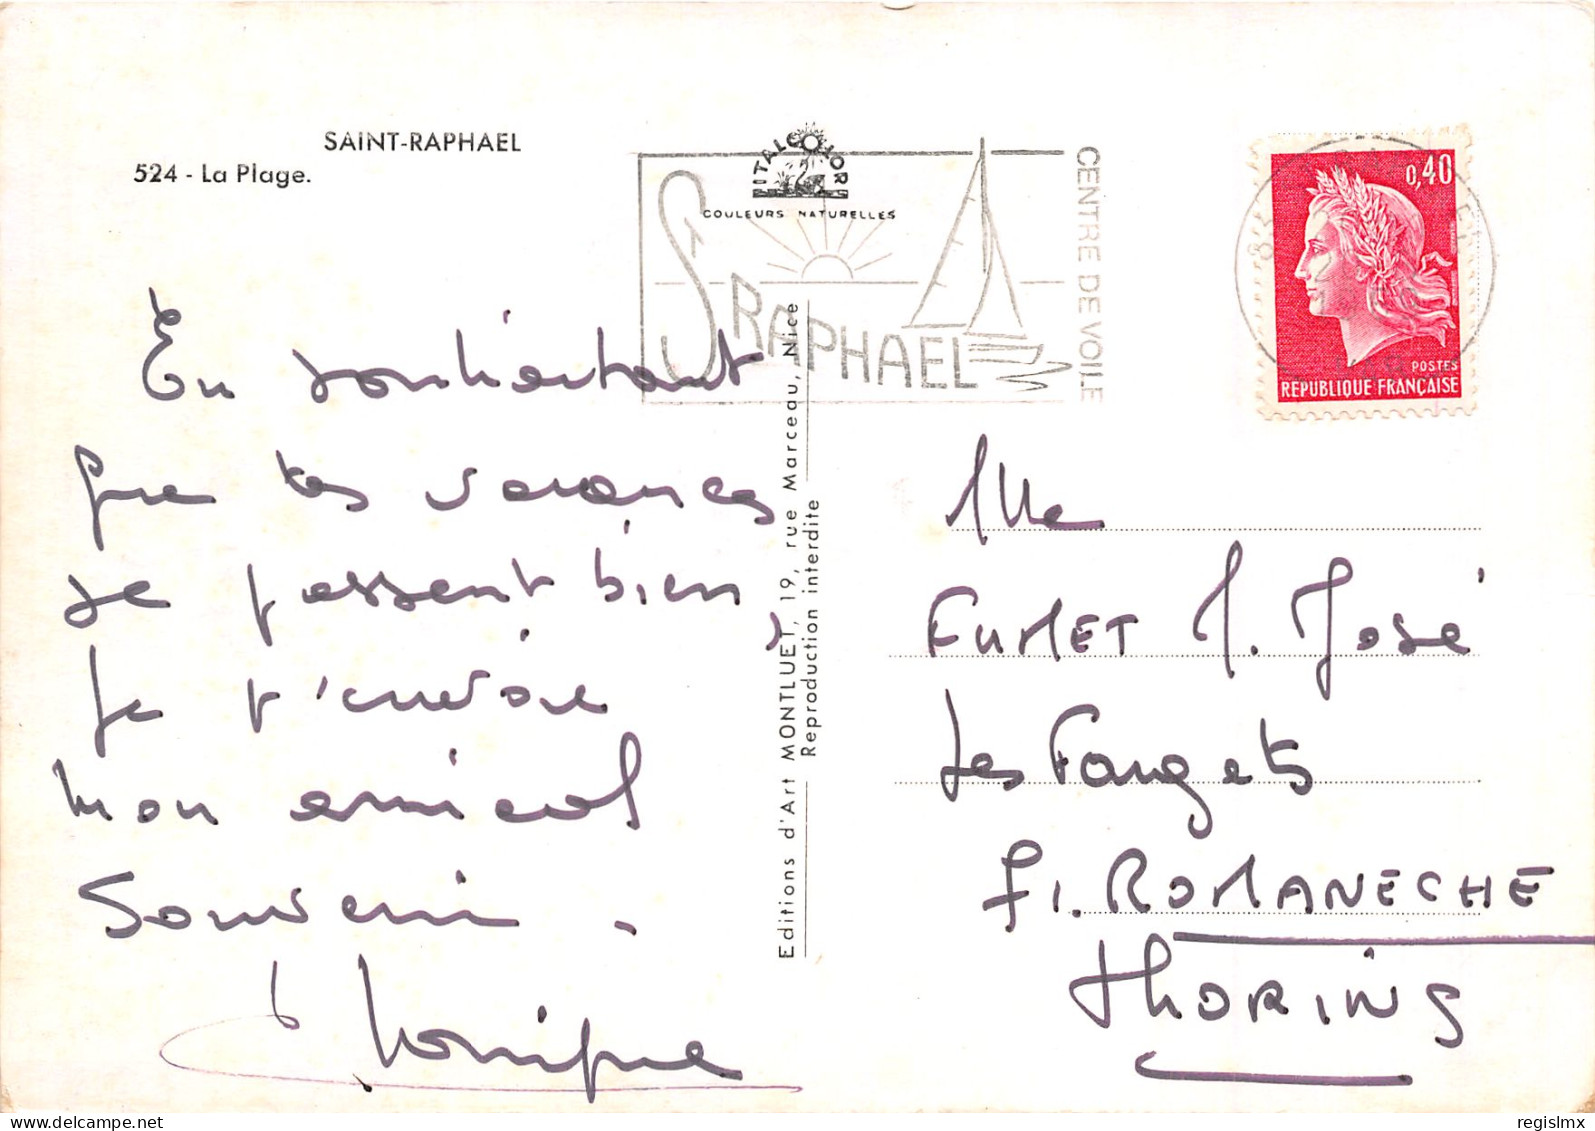 SAINT-RAPHAEL
524 - La Plage.
ITALCOLOR
COULEURS NATURELLES
ST RAPHAEL
CENTRE DE VOILE
0,40
POSTES
REPUBLIQUE FRANÇAISE
En souhaitant
que tes vacances
se passent bien,
Je t'envoie
mon amical
Souvenir.
Monique
Editions d'Art MONTLUET, 19, rue Marceau, Nice
Reproduction interdite
Mlle
FUMET M. José
Les Fargets
71. ROMANECHE
THORINS
regislmx